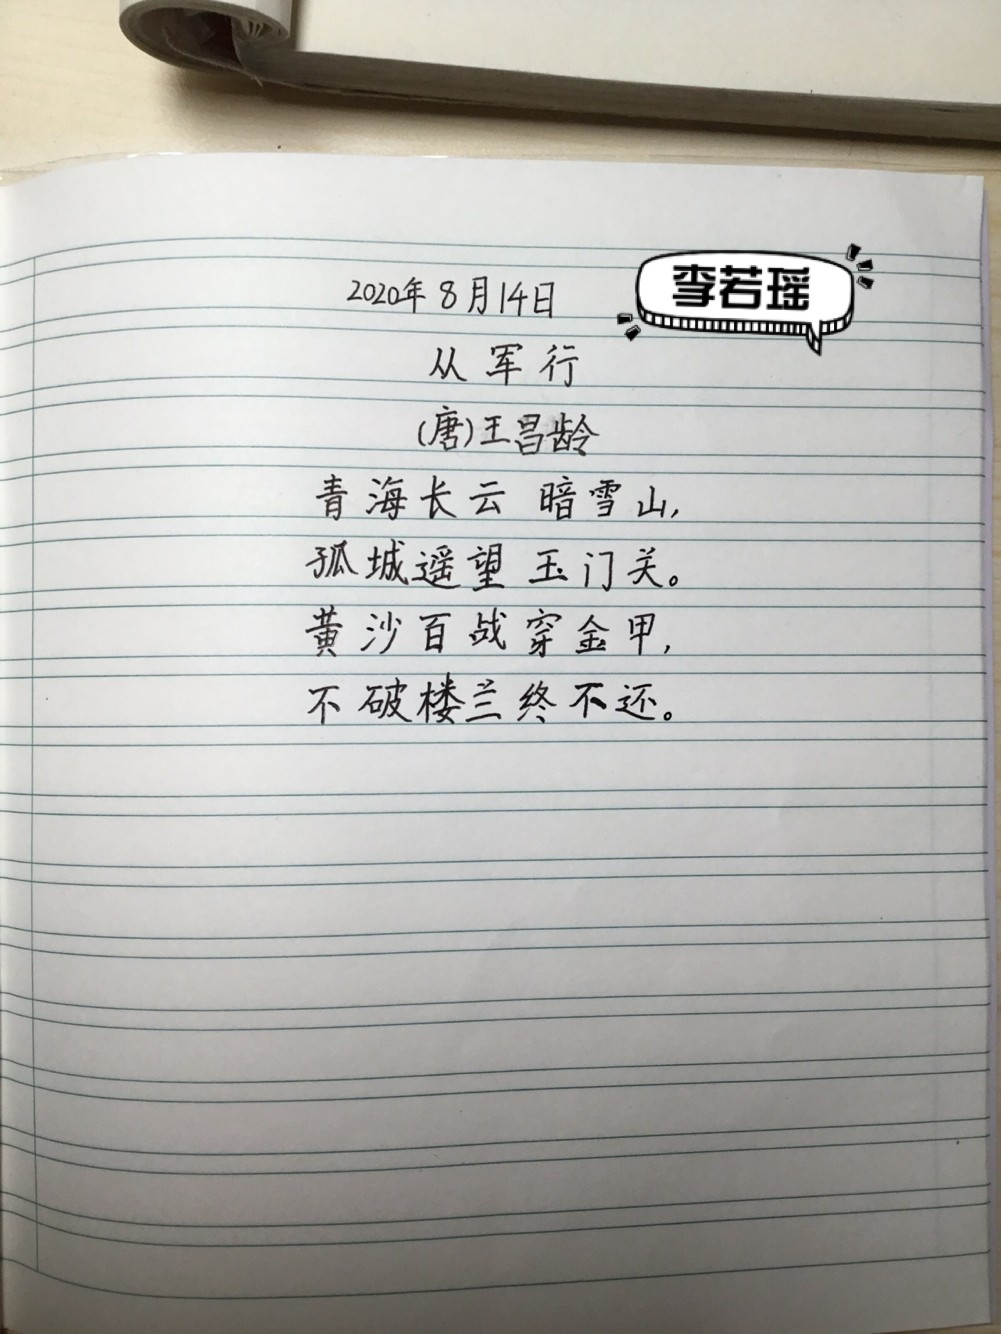 2020年8月14日
李若瑶
从军行
(唐)王昌龄
青海长云 暗雪山,
孤城遥望 玉门关。
黄沙百战穿金甲,
不破楼兰终不还。